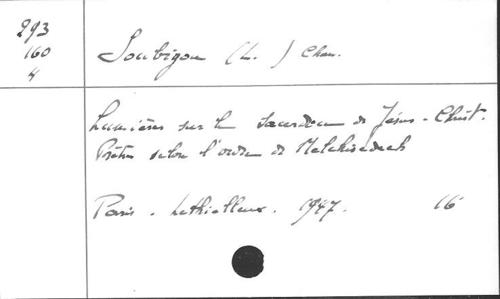 293
160
4
Soubigou (L.) Chan.
Lumières sur le sacerdoce de Jésus-Christ.
Prêtre selon l'ordre de Melchisédech
Paris. Lethielleux. 1947. 16